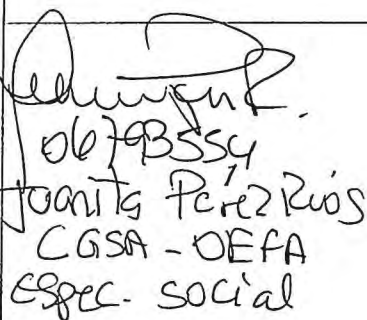 06793554
Juanita Pérez Rios
CGSA - OEFA
Espec. social